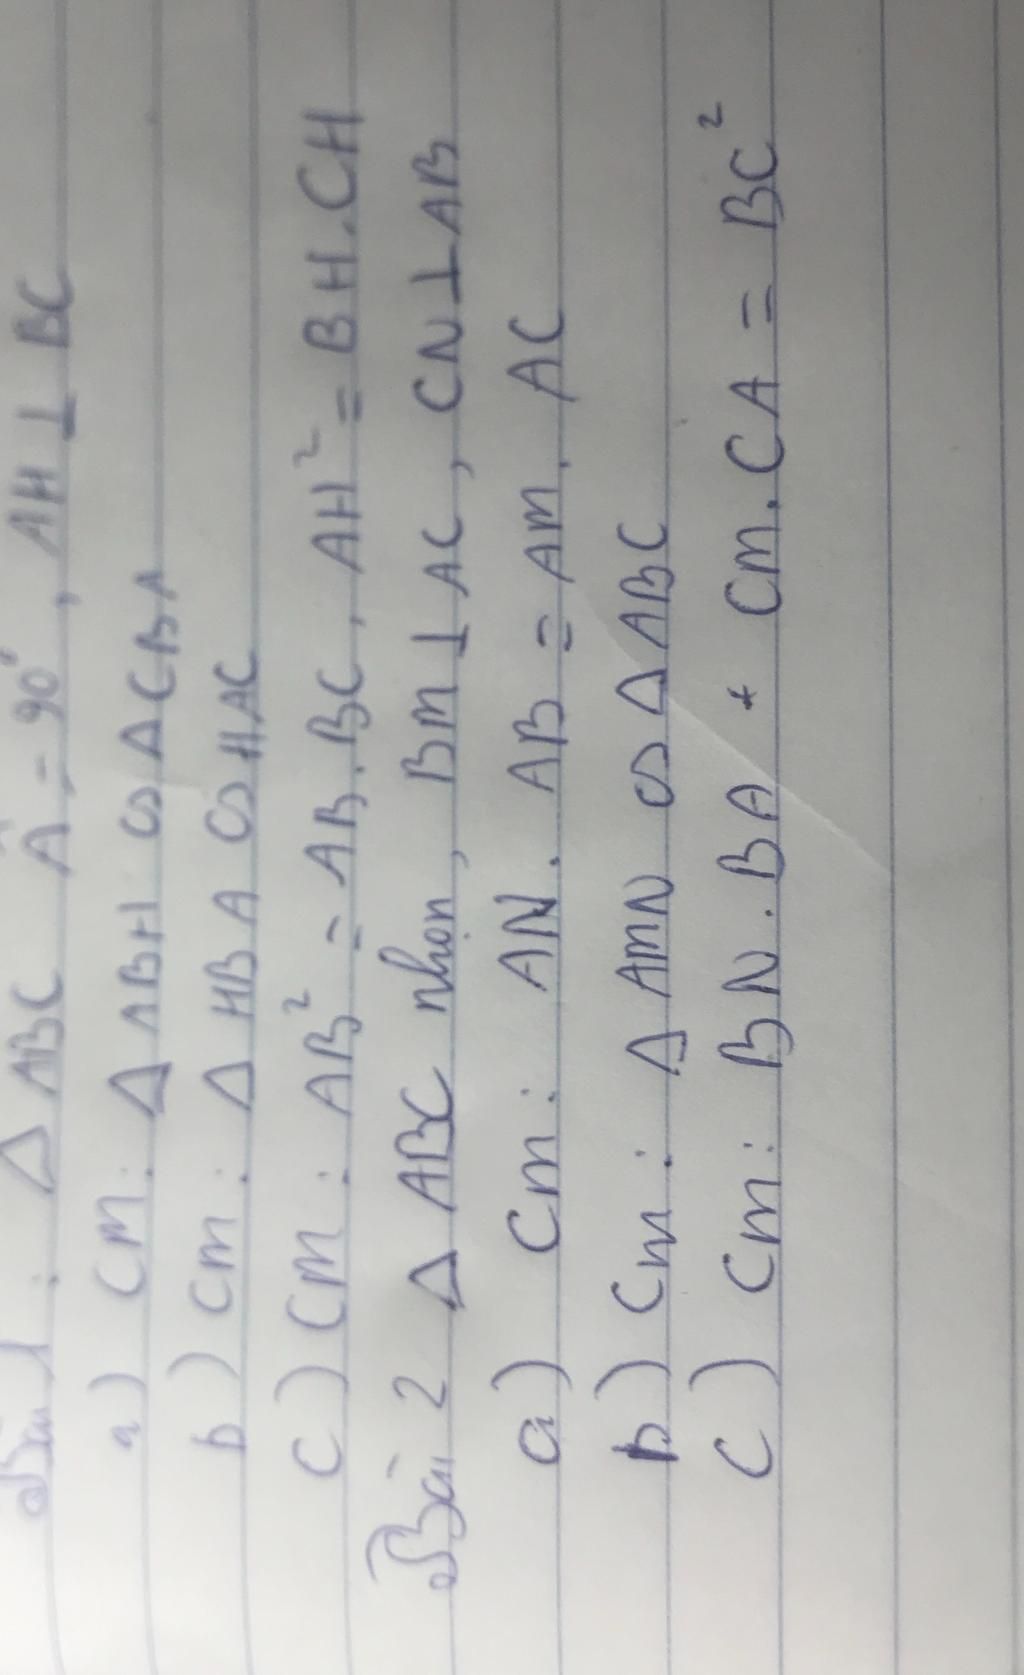 Bài 1 : Δ ABC Â = 90°, AH ⊥ BC
a) CM : Δ ABH ∽ Δ CBA
b) Cm : Δ HBA ∽ HAC
c) CM : AB² = AB.BC, AH² = BH.CH
Bài 2 Δ ABC nhọn, BM ⊥ AC, CN ⊥ AB
a) Cm : AN. AB = AM. AC
b) Cm : Δ AMN ∽ Δ ABC
c) Cm : BN. BA + Cm. CA = BC²